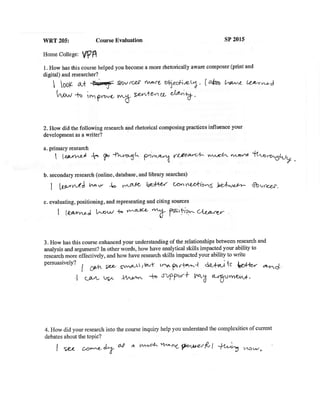 WRT 205: Course Evaluation SP 2015
Home College: VPA
1. How has this course helped you become a more rhetorically aware composer (print and
digital) and researcher?
I look at sources more objectively. I also have learned
how to improve my sentence clarity.
2. How did the following research and rhetorical composing practices influence your
development as a writer?
a. primary research
I learned to go through primary research much more thoroughly.
b. secondary research (online, database, and library searches)
I learned how to make better connections between sources.
c. evaluating, positioning, and representing and citing sources
I learned how to make my position clearer
3. How has this course enhanced your understanding of the relationships between research and
analysis and argument? In other words, how have analytical skills impacted your ability to
research more effectively, and how have research skills impacted your ability to write
persuasively? I can see small, but important details better and
I can use them to support my argument.
4. How did your research into the course inquiry help you understand the complexities of current
debates about the topic?
I see comedy as a much more powerful thing now.